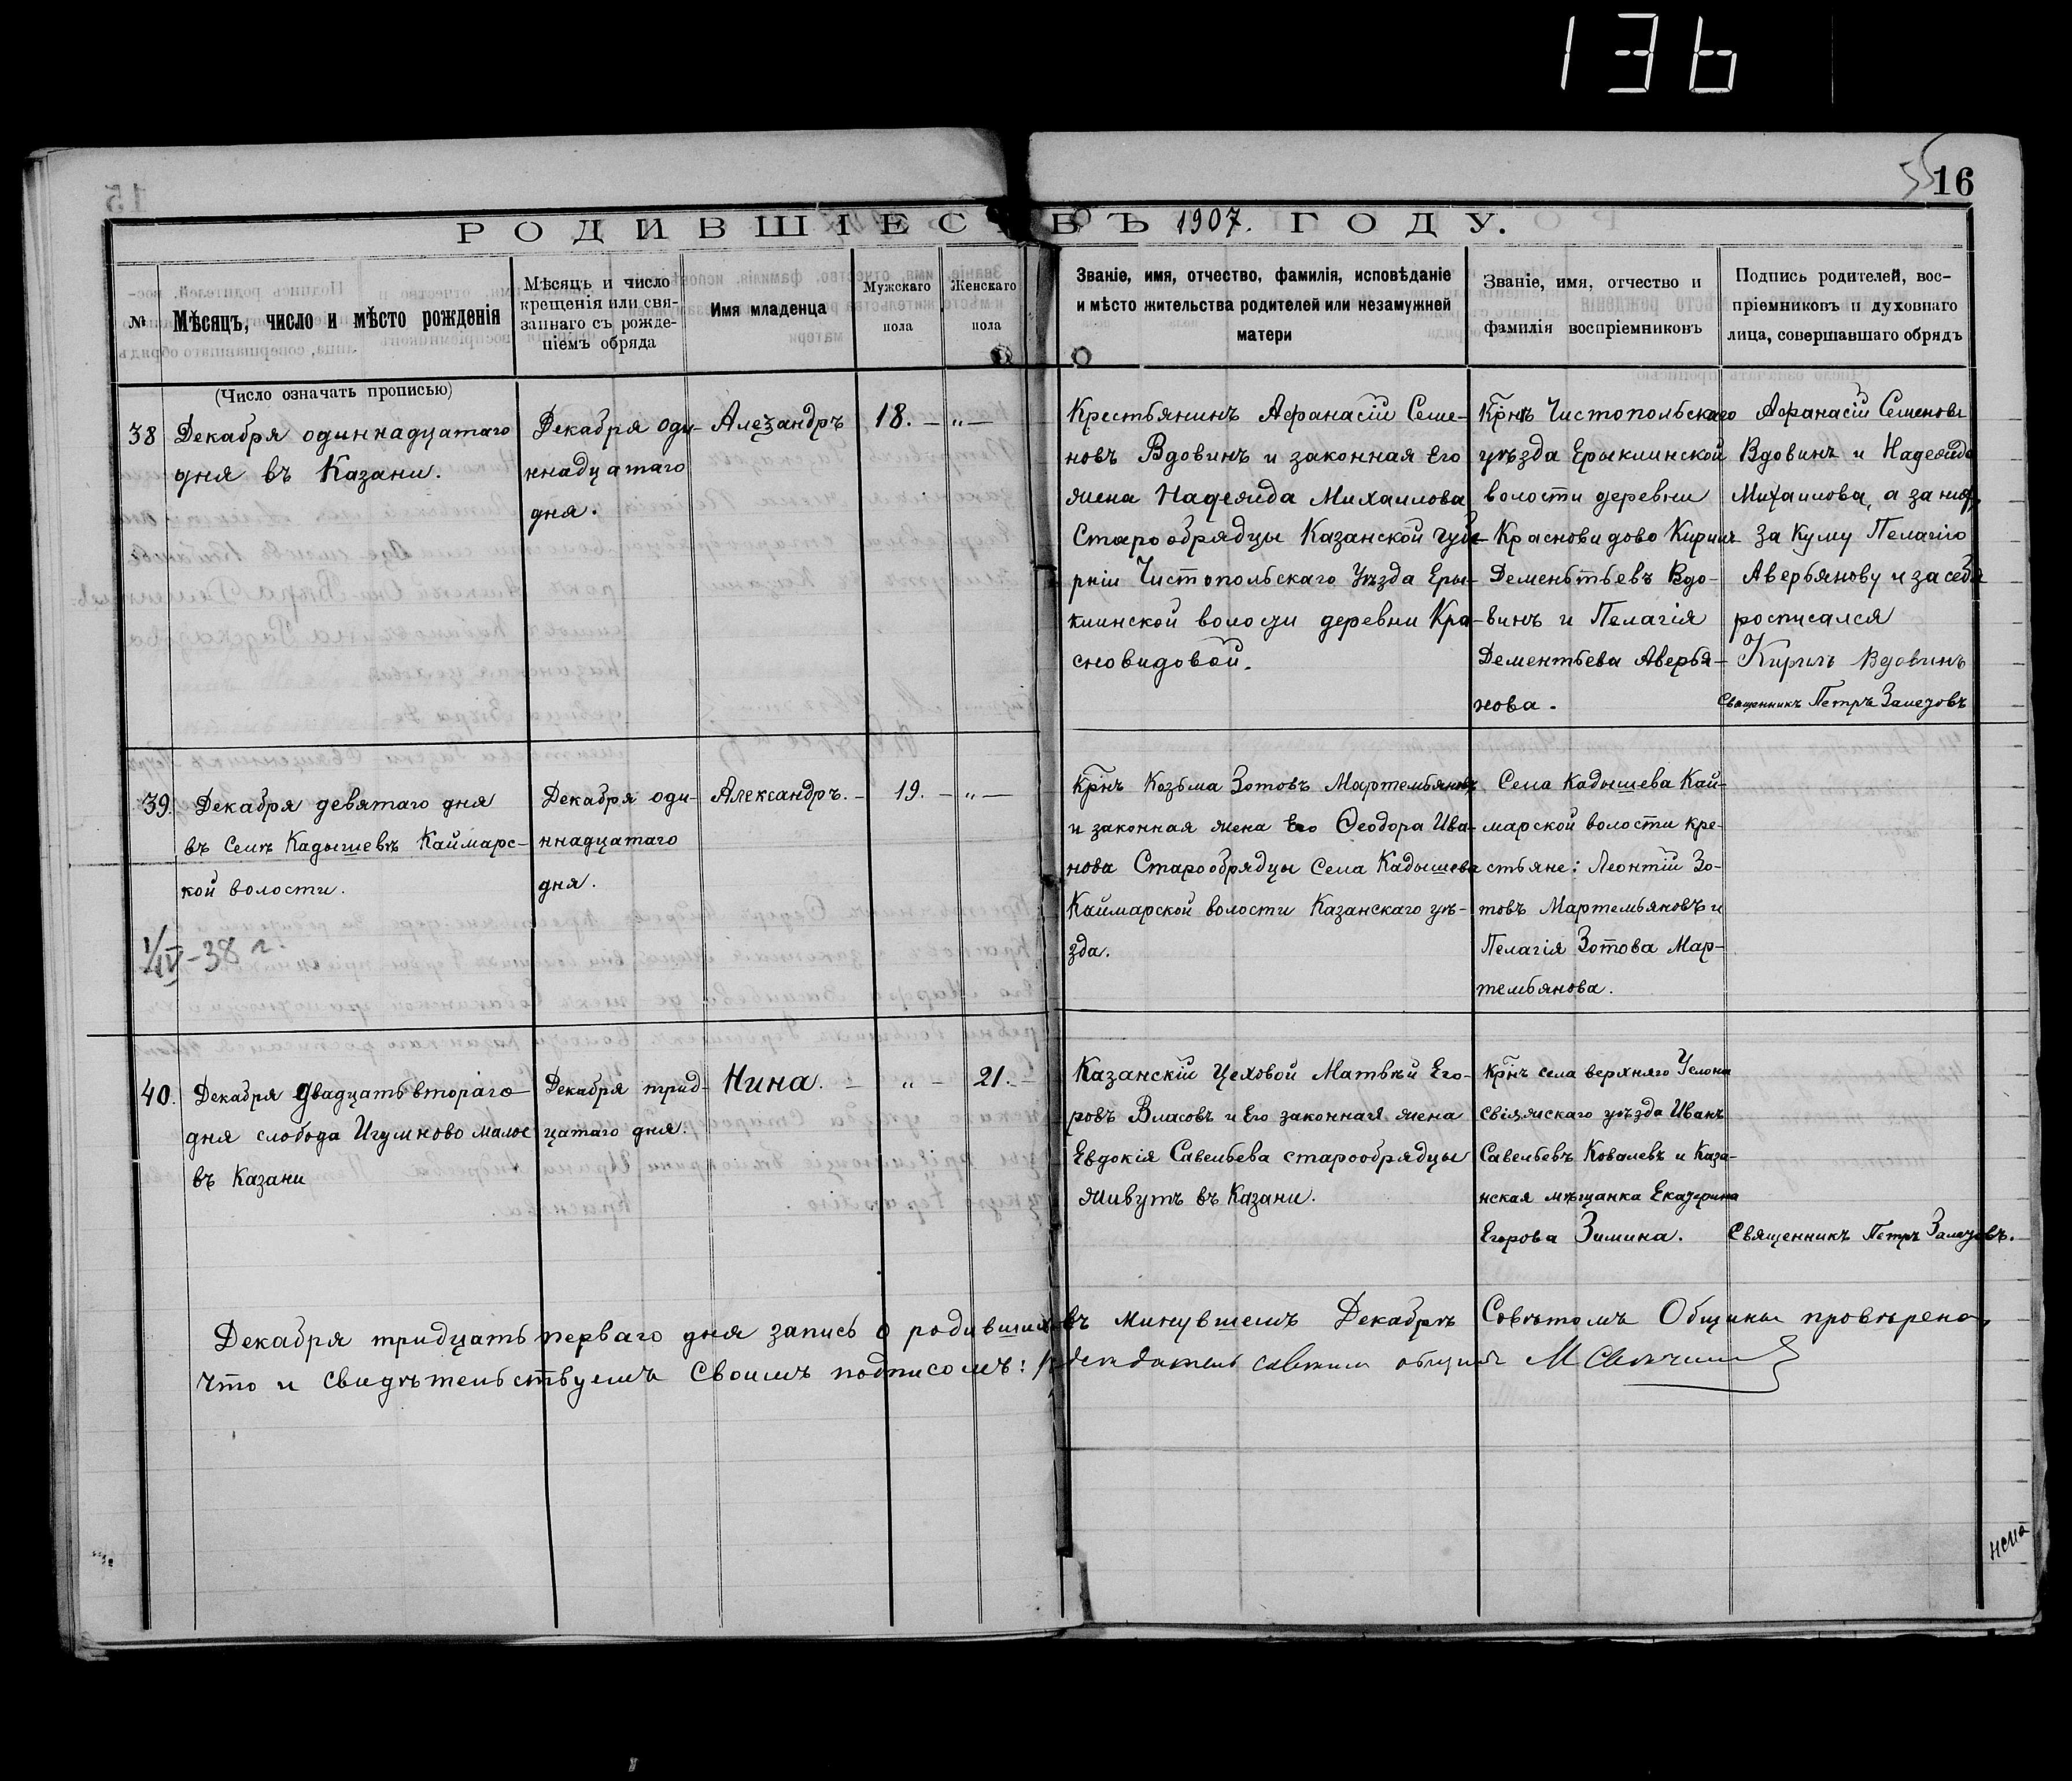 136
55
16
РОДИВШІЕСЯ ВЪ 1907. ГОДУ.
№
Мѣсяцъ, число и мѣсто рожденія
Мѣсяцъ и число
крещенія или свя-
заннаго съ рожде-
ніемъ обряда
Имя младенца
Мужскаго
пола
Женскаго
пола
Званіе, имя, отчество, фамилія, исповѣданіе
и мѣсто жительства родителей или незамужней
матери
Званіе, имя, отчество и
фамилія воспріемниковъ
Подпись родителей, вос-
пріемниковъ и духовнаго
лица, совершавшаго обрядъ
(Число означать прописью)
38
Декабря одиннадцатаго
дня въ Казани.
Декабря оди-
ннадцатаго
дня.
Алезандръ
18. — „ —
Крестьянинъ Афанасій Семе-
новъ Вдовинъ и законная Его
жена Надежда Михаилова
Старообрядцы Казанской губе-
рніи Чистопольскаго Уѣзда Еры-
клинской волости деревни Кра-
сновидовой.
Крнъ Чистопольскаго
уѣзда Ерыклинской
волости деревни
Красновидово Кирилъ
Деменьтьевъ Вдо-
винъ и Пелагія
Дементьева Аверья-
нова.
Афанасій Семеновъ
Вдовинъ и Надежда
Михаилова, а за них
За Куму Пелагію
Аверьянову и за себя
росписался
Кирилъ Вдовинъ
Священникъ Петръ Залетовъ
39.
Декабря девятаго дня
въ Селѣ Кадышевѣ Каймарс-
кой волости.
1/IV-38 г.
Декабря оди-
ннадцатаго
дня.
Александръ. —
19. — „ —
Крнъ Козьма Зотовъ Мартемьяновъ
и законная жена Его Ѳеодора Ива-
нова Старообрядцы Села Кадышева
Каймарской волости Казанскаго уѣ-
зда.
Села Кадышева Кай-
марской волости кре-
стьяне: Леонтій Зо-
товъ Мартемьяновъ и
Пелагія Зотова Мар-
темьянова.
40.
Декабря двадцать втораго
дня слобода Игумново малое
въ Казани
Декабря трид-
цатаго дня.
Нина. — „ — 21. —
Казанскій Цеховой Матвѣй Его-
ровъ Власовъ и Его законная жена
Евдокія Савельева старообрядцы
живутъ въ Казани.
Крнъ села верхняго Услона
Свіяжскаго уѣзда Иванъ
Савельевъ Ковалевъ и Каза-
нская мѣщанка Екатерина
Егорова Зимина.
Священникъ Петръ Залетовъ.
Декабря тридцать перваго дня запись о родившихся въ минувшемъ Декабрѣ Совѣтомъ Общины провѣрена,
что и свидѣтельствуемъ Своимъ подписомъ: Председатель совета общины М